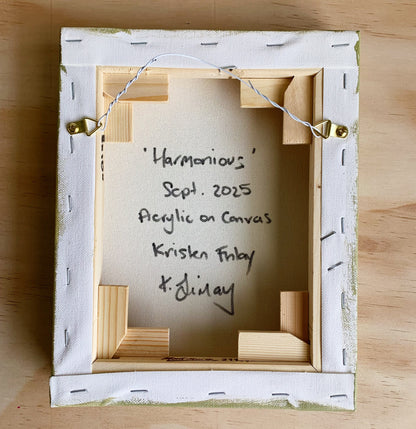 'Harmonious'
Sept. 2025
Acrylic on Canvas
Kristen Finlay
K. Finlay